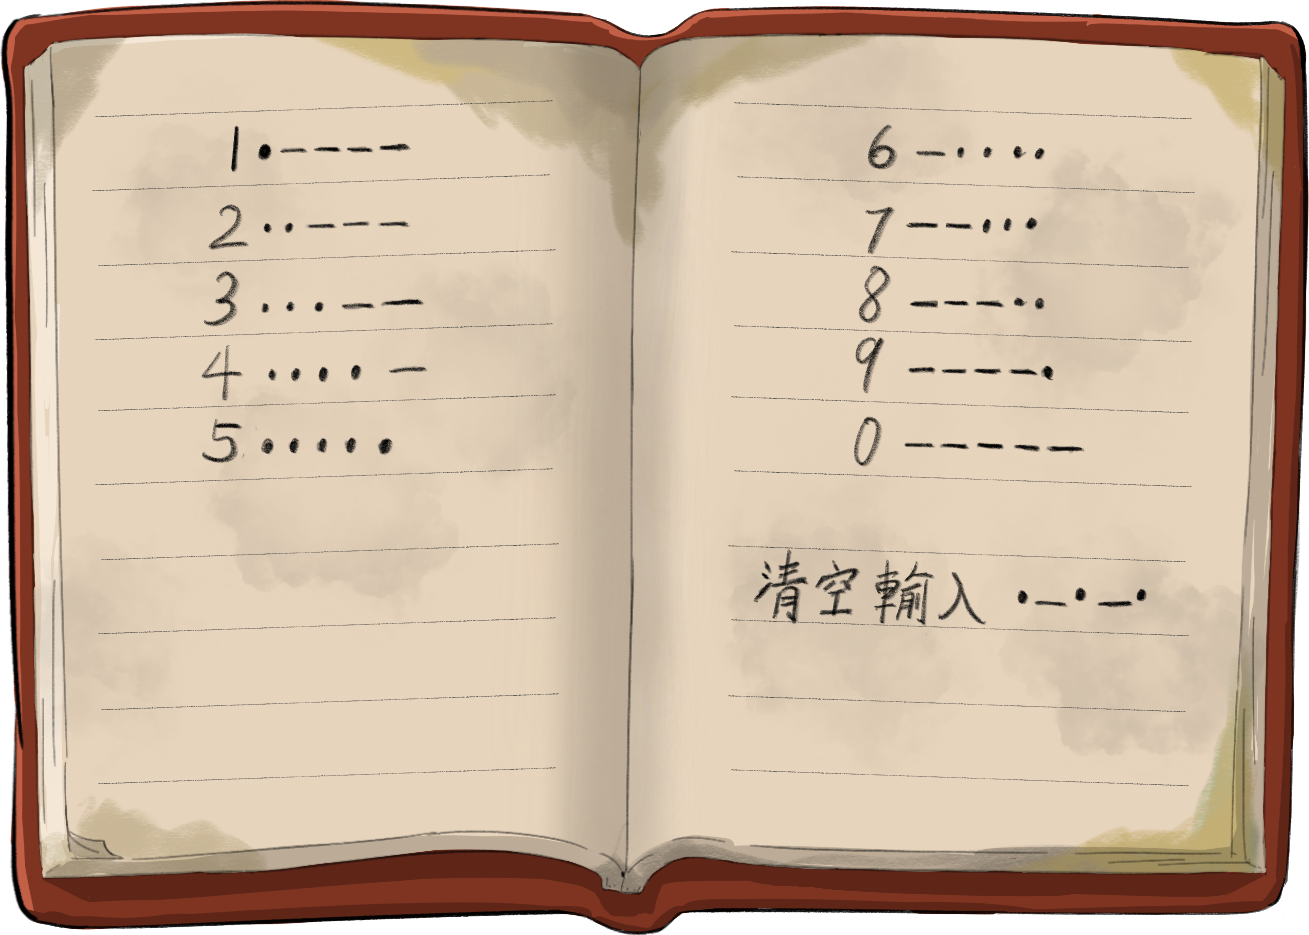 1 •－－－－
2 ••－－－
3 •••－－
4 ••••－
5 •••••
6 －••••
7 －－•••
8 －－－••
9 －－－－•
0 －－－－－
清空輸入 •－•－•